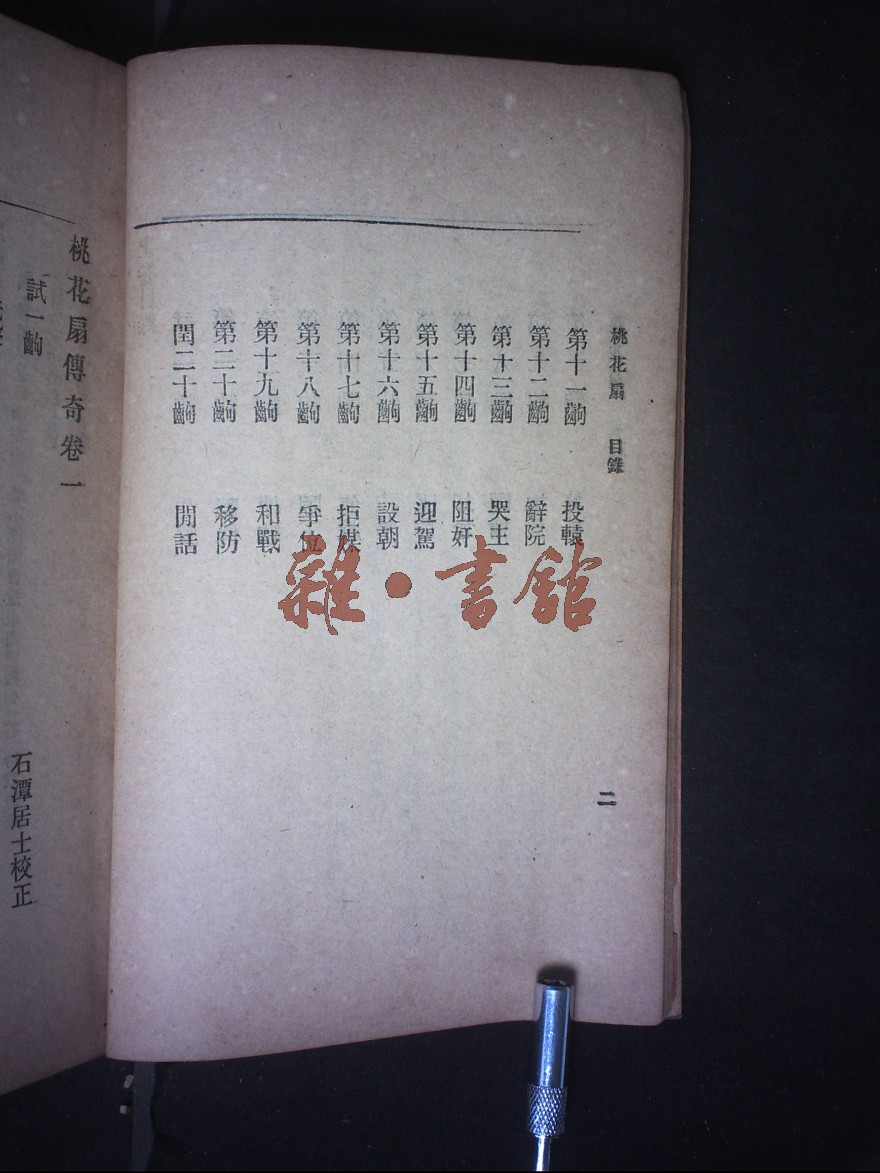 桃花扇 目錄
第十一齣 投轅
第十二齣 辭院
第十三齣 哭主
第十四齣 阻奸
第十五齣 迎駕
第十六齣 設朝
第十七齣 拒媒
第十八齣 爭位
第十九齣 和戰
第二十齣 移防
閏二十齣 閒話
二
桃花扇傳奇卷一
試一齣
石潭居士校正
雜·書館